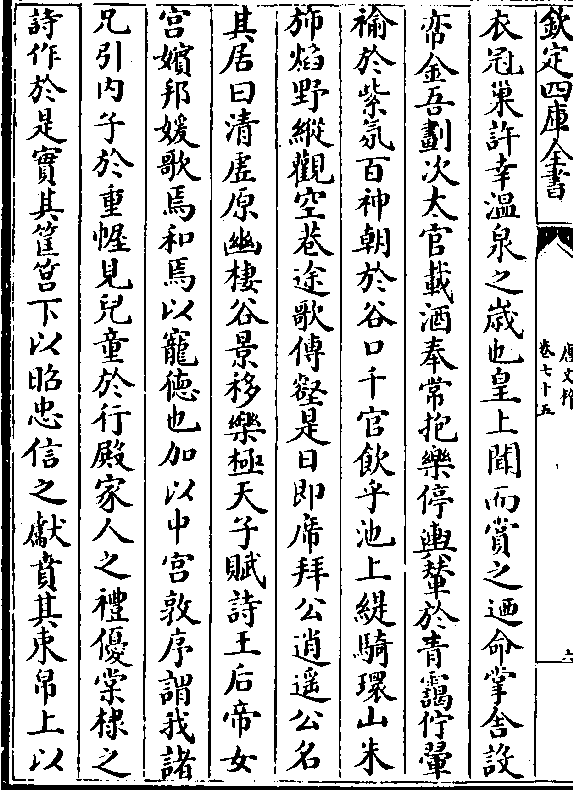 欽定四庫全書
唐文粹
卷七十五
六
衣冠巢許幸溫泉之歲也皇上聞而賞之廼命掌舍設
帟金吾劃次太官載酒奉常抱樂停輿輦於青靄佇翬
褕於紫氛百神朝於谷口千官飲乎池上緹騎環山朱
斾焰野縱觀空巷途歌傳壑是日即席拜公逍遥公名
其居曰清虛原幽棲谷景移樂極天子賦詩王后帝女
宮嬪邦媛歌焉和焉以寵德也加以中宮敦序謂我諸
兄引內子於重幄見兒童於行殿家人之禮優棠棣之
詩作於是實其筐筥下以昭忠信之獻賁其束帛上以